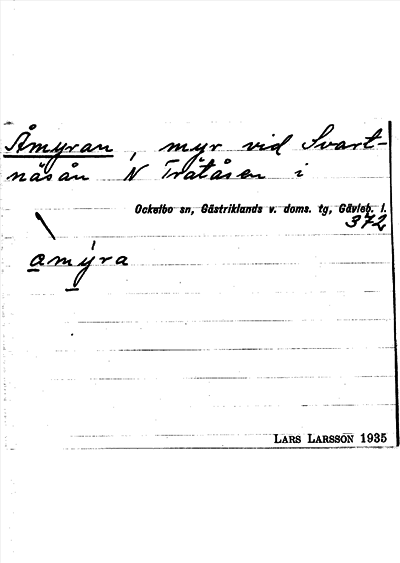 Åmyran, myr vid Svart-
näsån N Tråtåsen i
Ockelbo sn, Gästriklands v. doms. tg, Gävleb. l.
372
amýra
LARS LARSSON 1935